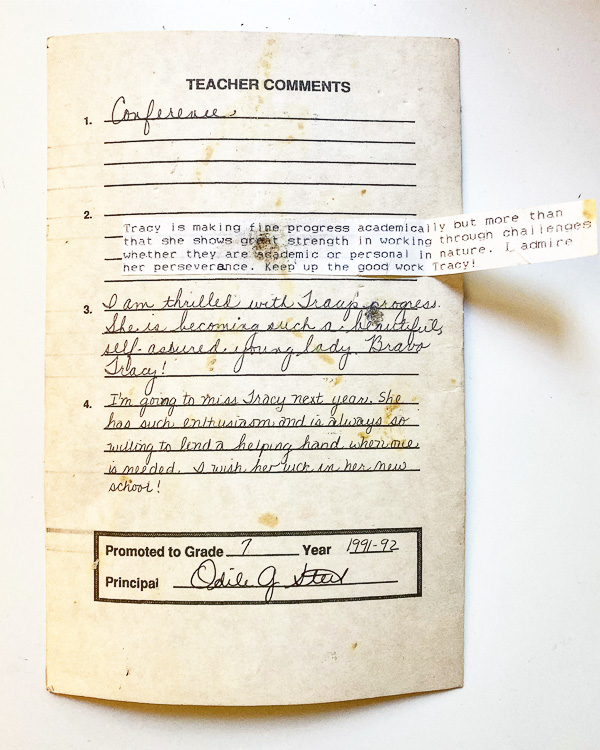 TEACHER COMMENTS
1. Conference
2.
Tracy is making fine progress academically but more than
that she shows great strength in working through challenges
whether they are academic or personal in nature. I admire
her perseverance. Keep up the good work Tracy!
3. I am thrilled with Tracy's progress.
She is becoming such a beautiful,
self-assured young lady. Bravo
Tracy!
4. I'm going to miss Tracy next year. She
has such enthusiasm and is always so
willing to lend a helping hand when one
is needed. I wish her luck in her new
school!
Promoted to Grade 7 Year 1991-92
Principal Odile G